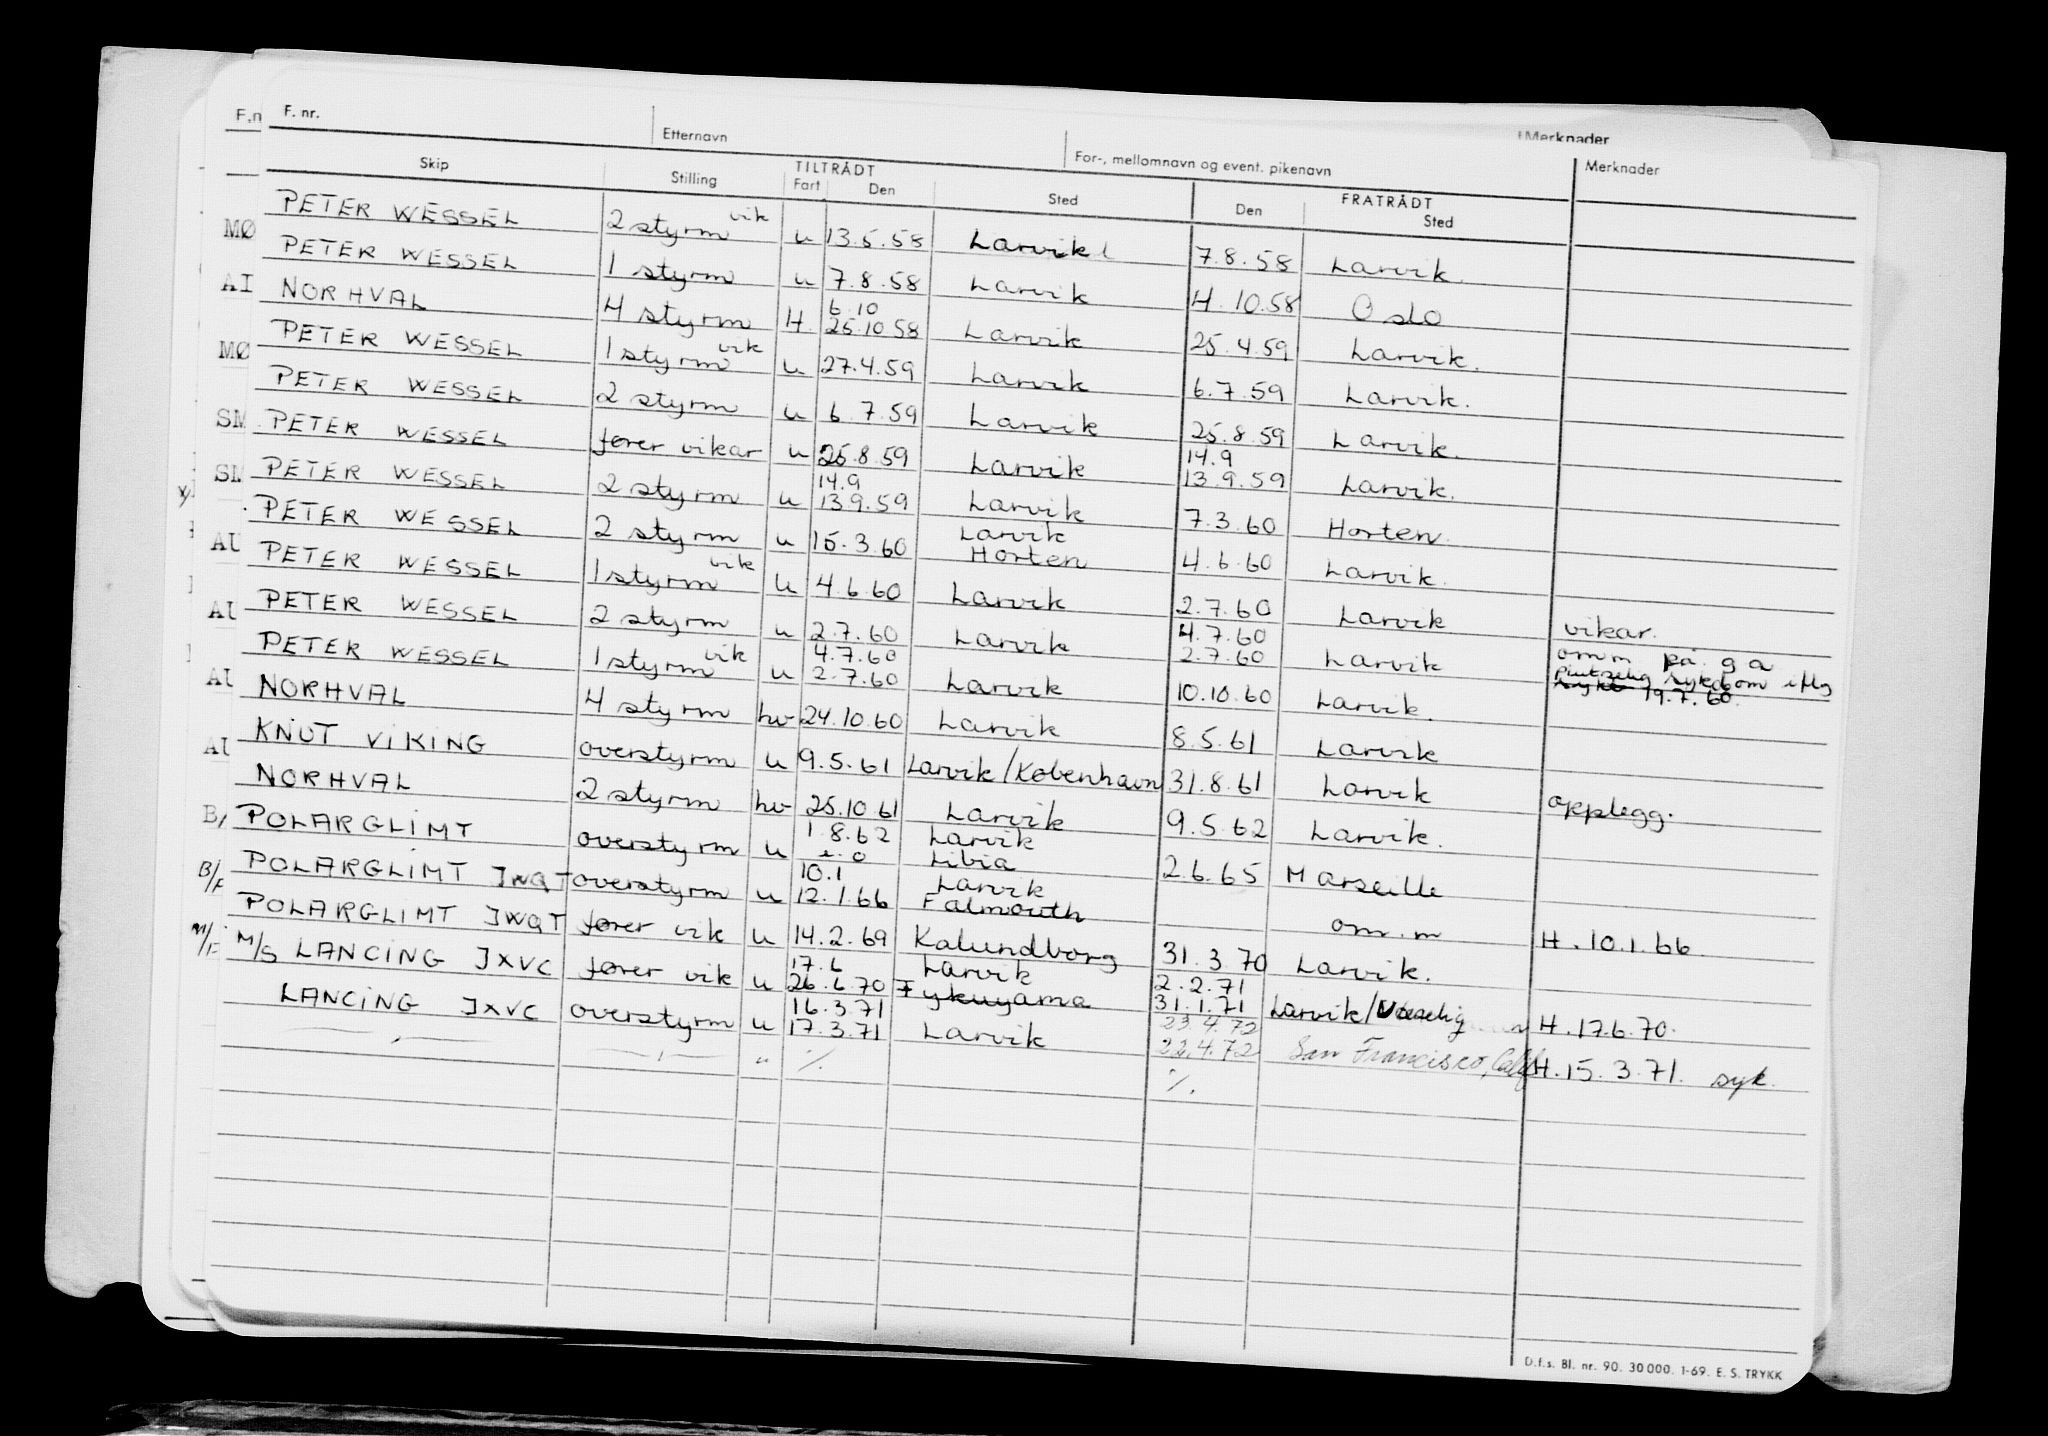 F. nr. Etternavn For-, mellomnavn og event. pikenavn Merknader
Skip Stilling TILTRÅDT Fart Den Sted FRATRÅDT Den Sted Merknader
PETER WESSEL 2 styrm vik u 13.5.58 Larvik 7.8.58 Larvik.
PETER WESSEL 1 styrm u 7.8.58 Larvik 4.10.58 Oslo
NORHVAL 4 styrm H. 6.10 25.10.58 Larvik 25.4.59 Larvik.
PETER WESSEL 1 styrm vik u 27.4.59 Larvik 6.7.59 Larvik.
PETER WESSEL 2 styrm u 6.7.59 Larvik 25.8.59 Larvik.
PETER WESSEL fører vikar u 25.8.59 Larvik 14.9 13.9.59 Larvik.
PETER WESSEL 2 styrm u 14.9 13.9.59 Larvik 7.3.60 Horten.
PETER WESSEL 2 styrm u 15.3.60 Larvik Horten 4.6.60 Larvik.
PETER WESSEL 1 styrm vik u 4.6.60 Larvik 2.7.60 Larvik vikar.
PETER WESSEL 2 styrm u 2.7.60 Larvik 4.7.60 2.7.60 Larvik omm på g a sykdom iflg 19.7.60.
PETER WESSEL 1 styrm vik u 4.7.60 2.7.60 Larvik 10.10.60 Larvik.
NORHVAL 4 styrm hv 24.10.60 Larvik 8.5.61 Larvik
KNUT VIKING overstyrm u 9.5.61 Larvik/København 31.8.61 Larvik opplegg.
NORHVAL 2 styrm hv 25.10.61 Larvik 9.5.62 Larvik.
POLARGLIMT overstyrm u 1.8.62 Larvik Libia 2.6.65 Marseille
POLARGLIMT JWQT overstyrm u 10.1 12.1.66 Larvik Falmouth om.m H. 10.1.66.
POLARGLIMT JWQT fører vik u 14.2.69 Kalundborg 31.3.70 Larvik.
M/S LANCING JXVC fører vik u 17.6 26.6.70 Larvik Fykuyama 2.2.71 31.1.71 Larvik/ H. 17.6.70.
LANCING JXVC overstyrm u 16.3.71 17.3.71 Larvik 23.4.72 22.4.72 San Francisco, Calf H. 15.3.71. syk.
D.f.s. Bl. nr. 90. 30 000. 1-69. E. S. TRYKK